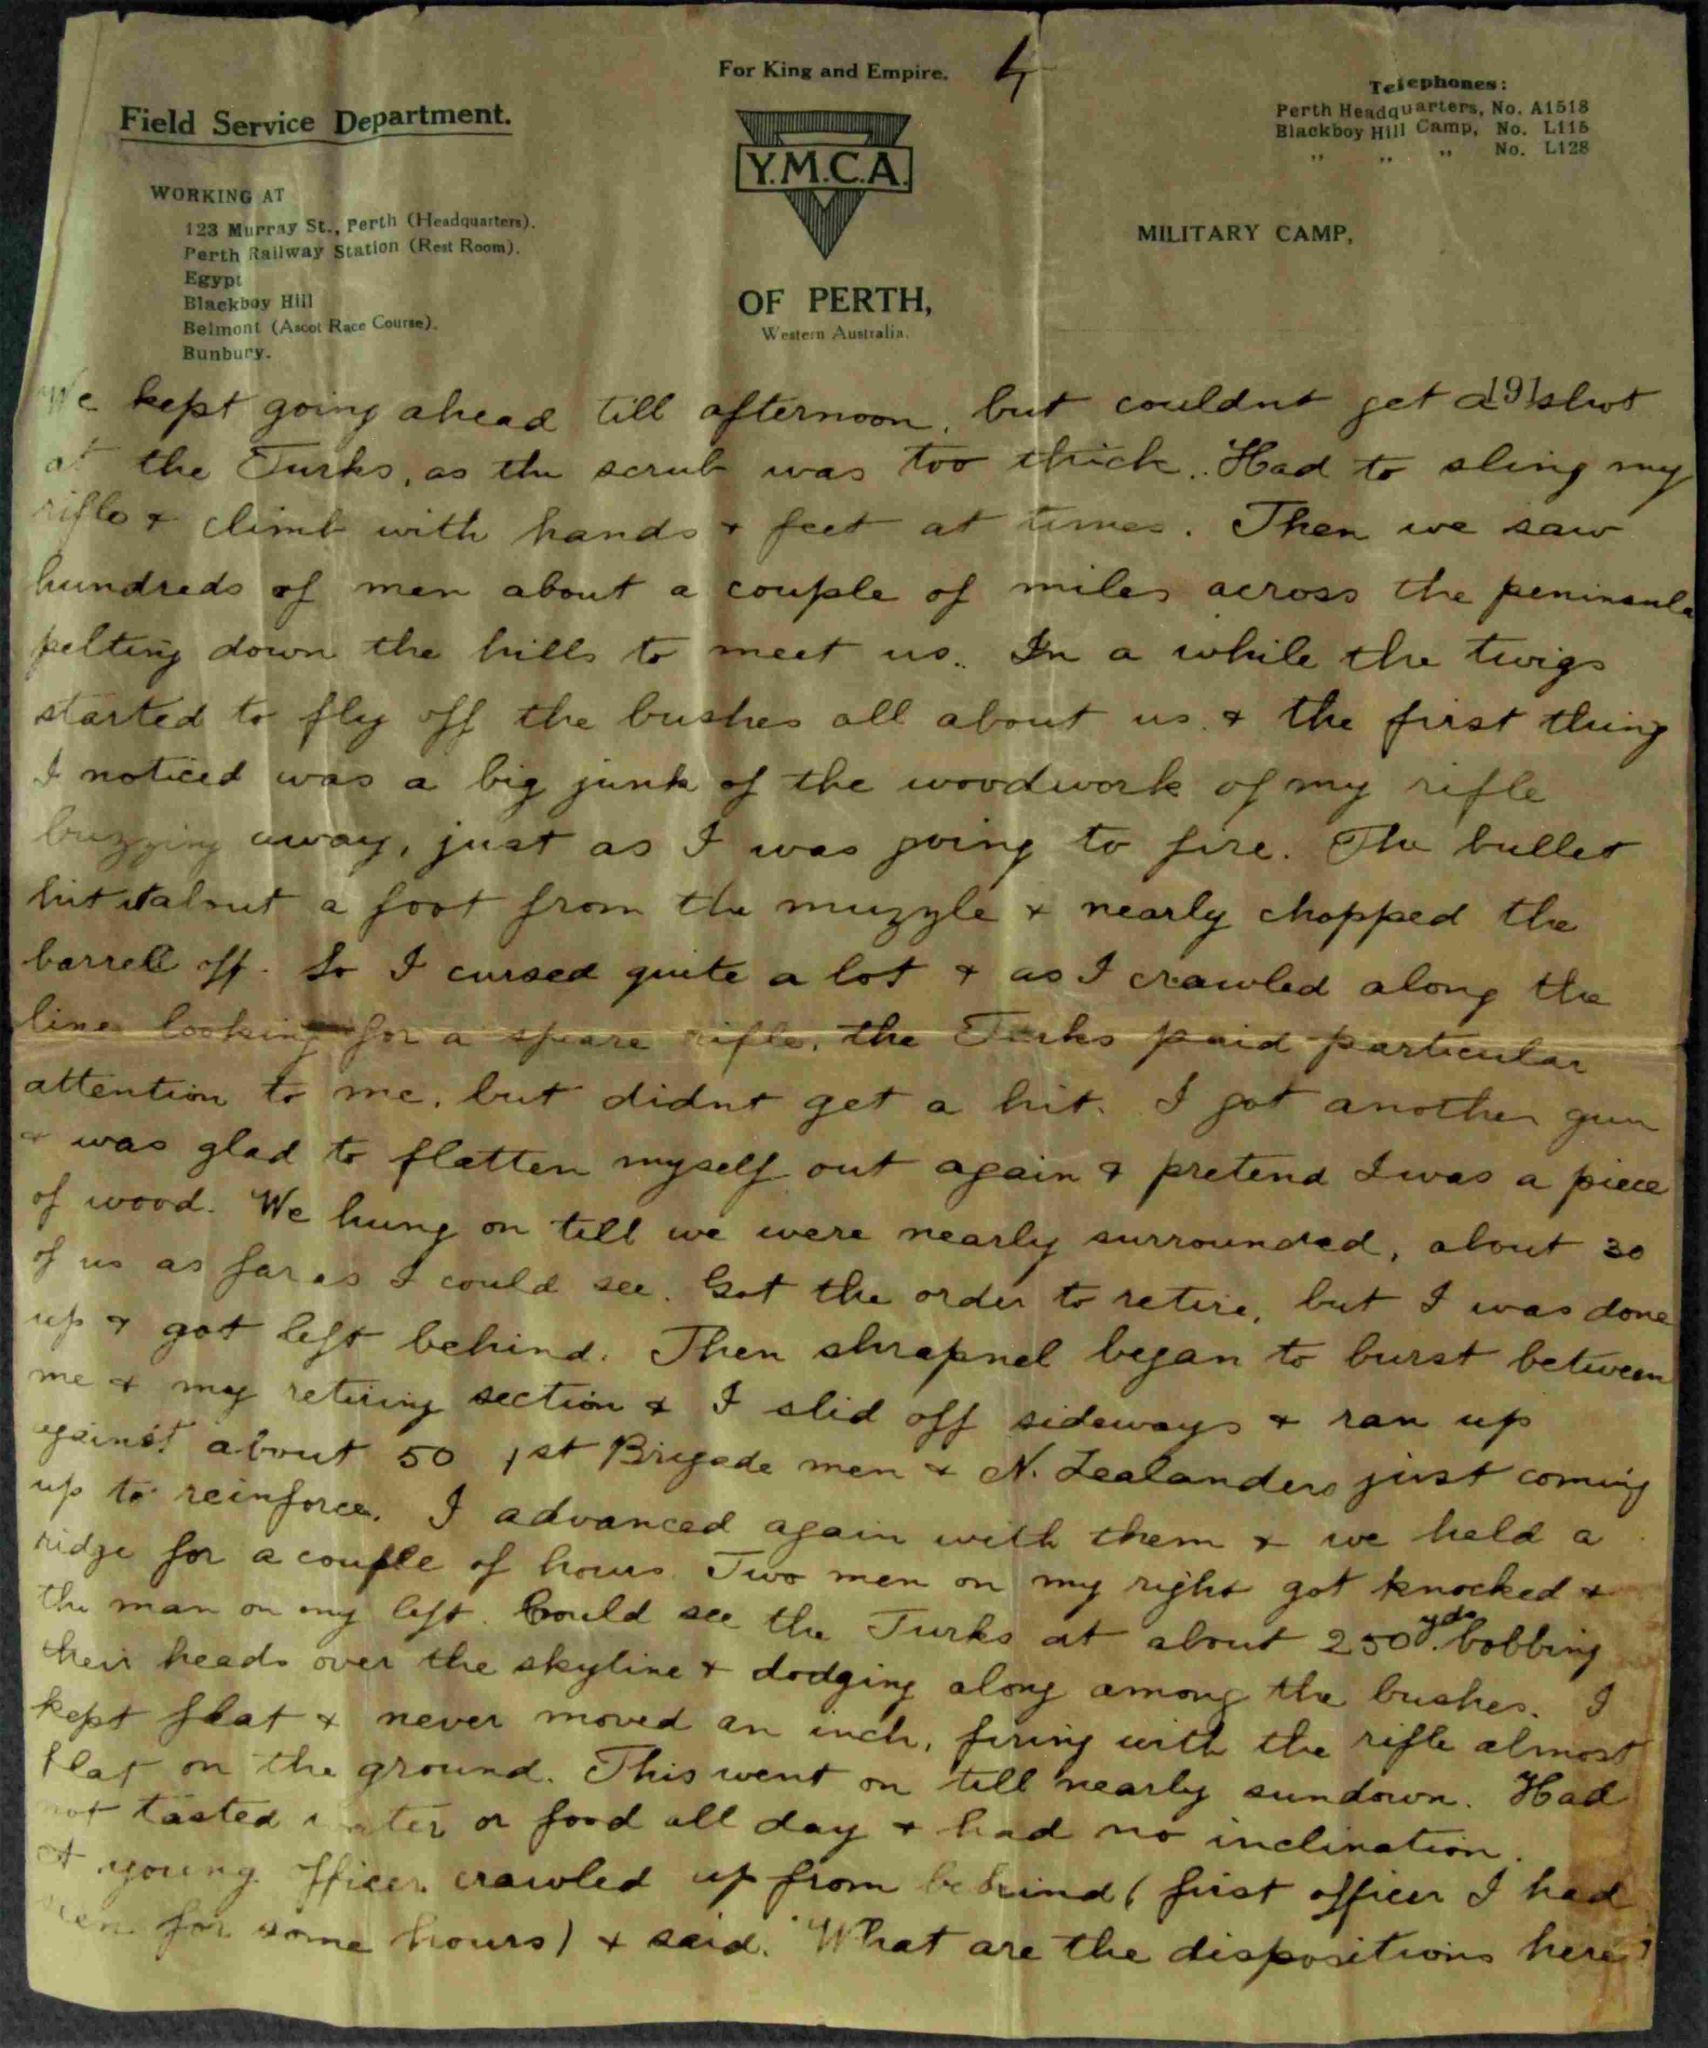 For King and Empire.
4
Field Service Department.
Telephones:
Perth Headquarters, No. A1518
Blackboy Hill Camp, No. L115
" " " No. L128
Y.M.C.A.
WORKING AT
123 Murray St., Perth (Headquarters).
Perth Railway Station (Rest Room).
Egypt
Blackboy Hill
Belmont (Ascot Race Course).
Bunbury.
MILITARY CAMP,
OF PERTH,
Western Australia.
191
We kept going ahead till afternoon, but couldnt get a shot
at the Turks, as the scrub was too thick. Had to sling my
rifle & climb with hands & feet at times. Then we saw
hundreds of men about a couple of miles across the peninsula
pelting down the hills to meet us. In a while the twigs
started to fly off the bushes all about us & the first thing
I noticed was a big junk of the woodwork of my rifle
buzzing away, just as I was going to fire. The bullet
hit it about a foot from the muzzle & nearly chopped the
barrell off. So I cursed quite a lot & as I crawled along the
line looking for a spare rifle, the Turks paid particular
attention to me, but didnt get a hit. I got another gun
& was glad to flatten myself out again & pretend I was a piece
of wood. We hung on till we were nearly surrounded, about 30
of us as far as I could see. Got the order to retire, but I was done
up & got left behind. Then shrapnel began to burst between
me & my retiring section & I slid off sideways & ran up
against about 50 1st Brigade men & N. Zealanders just coming
up to reinforce. I advanced again with them & we held a
ridge for a couple of hours. Two men on my right got knocked &
the man on my left. Could see the Turks at about 250 yds. bobbing
their heads over the skyline & dodging along among the bushes. I
kept flat & never moved an inch, firing with the rifle almost
flat on the ground. This went on till nearly sundown. Had
not tasted water or food all day & had no inclination.
A young officer crawled up from behind (first officer I had
seen for some hours) & said. "What are the dispositions here?